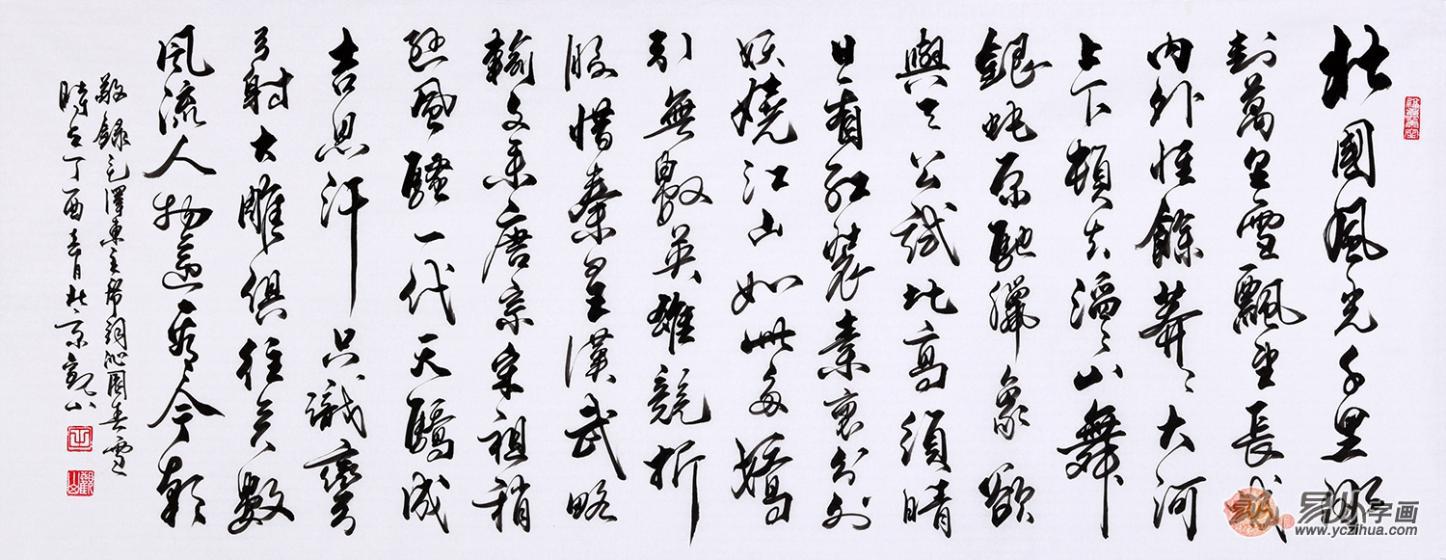 北國風光千里冰
封萬里雪飄望長城
内外惟餘莽々大河
上下頓失滔々山舞
銀蛇原馳臘象欲
與天公試比高須晴
日看紅裝素裹分外
妖嬈江山如此多嬌
引無數英雄競折
腰惜秦皇漢武略
輸文采唐宗宋祖稍
遜風騷一代天驕成
吉思汗只識彎
弓射大雕俱往矣數
風流人物還看今朝
敬錄毛澤東主席詞沁園春雪
時在丁酉春月於京觀山
觀山
易从字画
www.yczihua.com